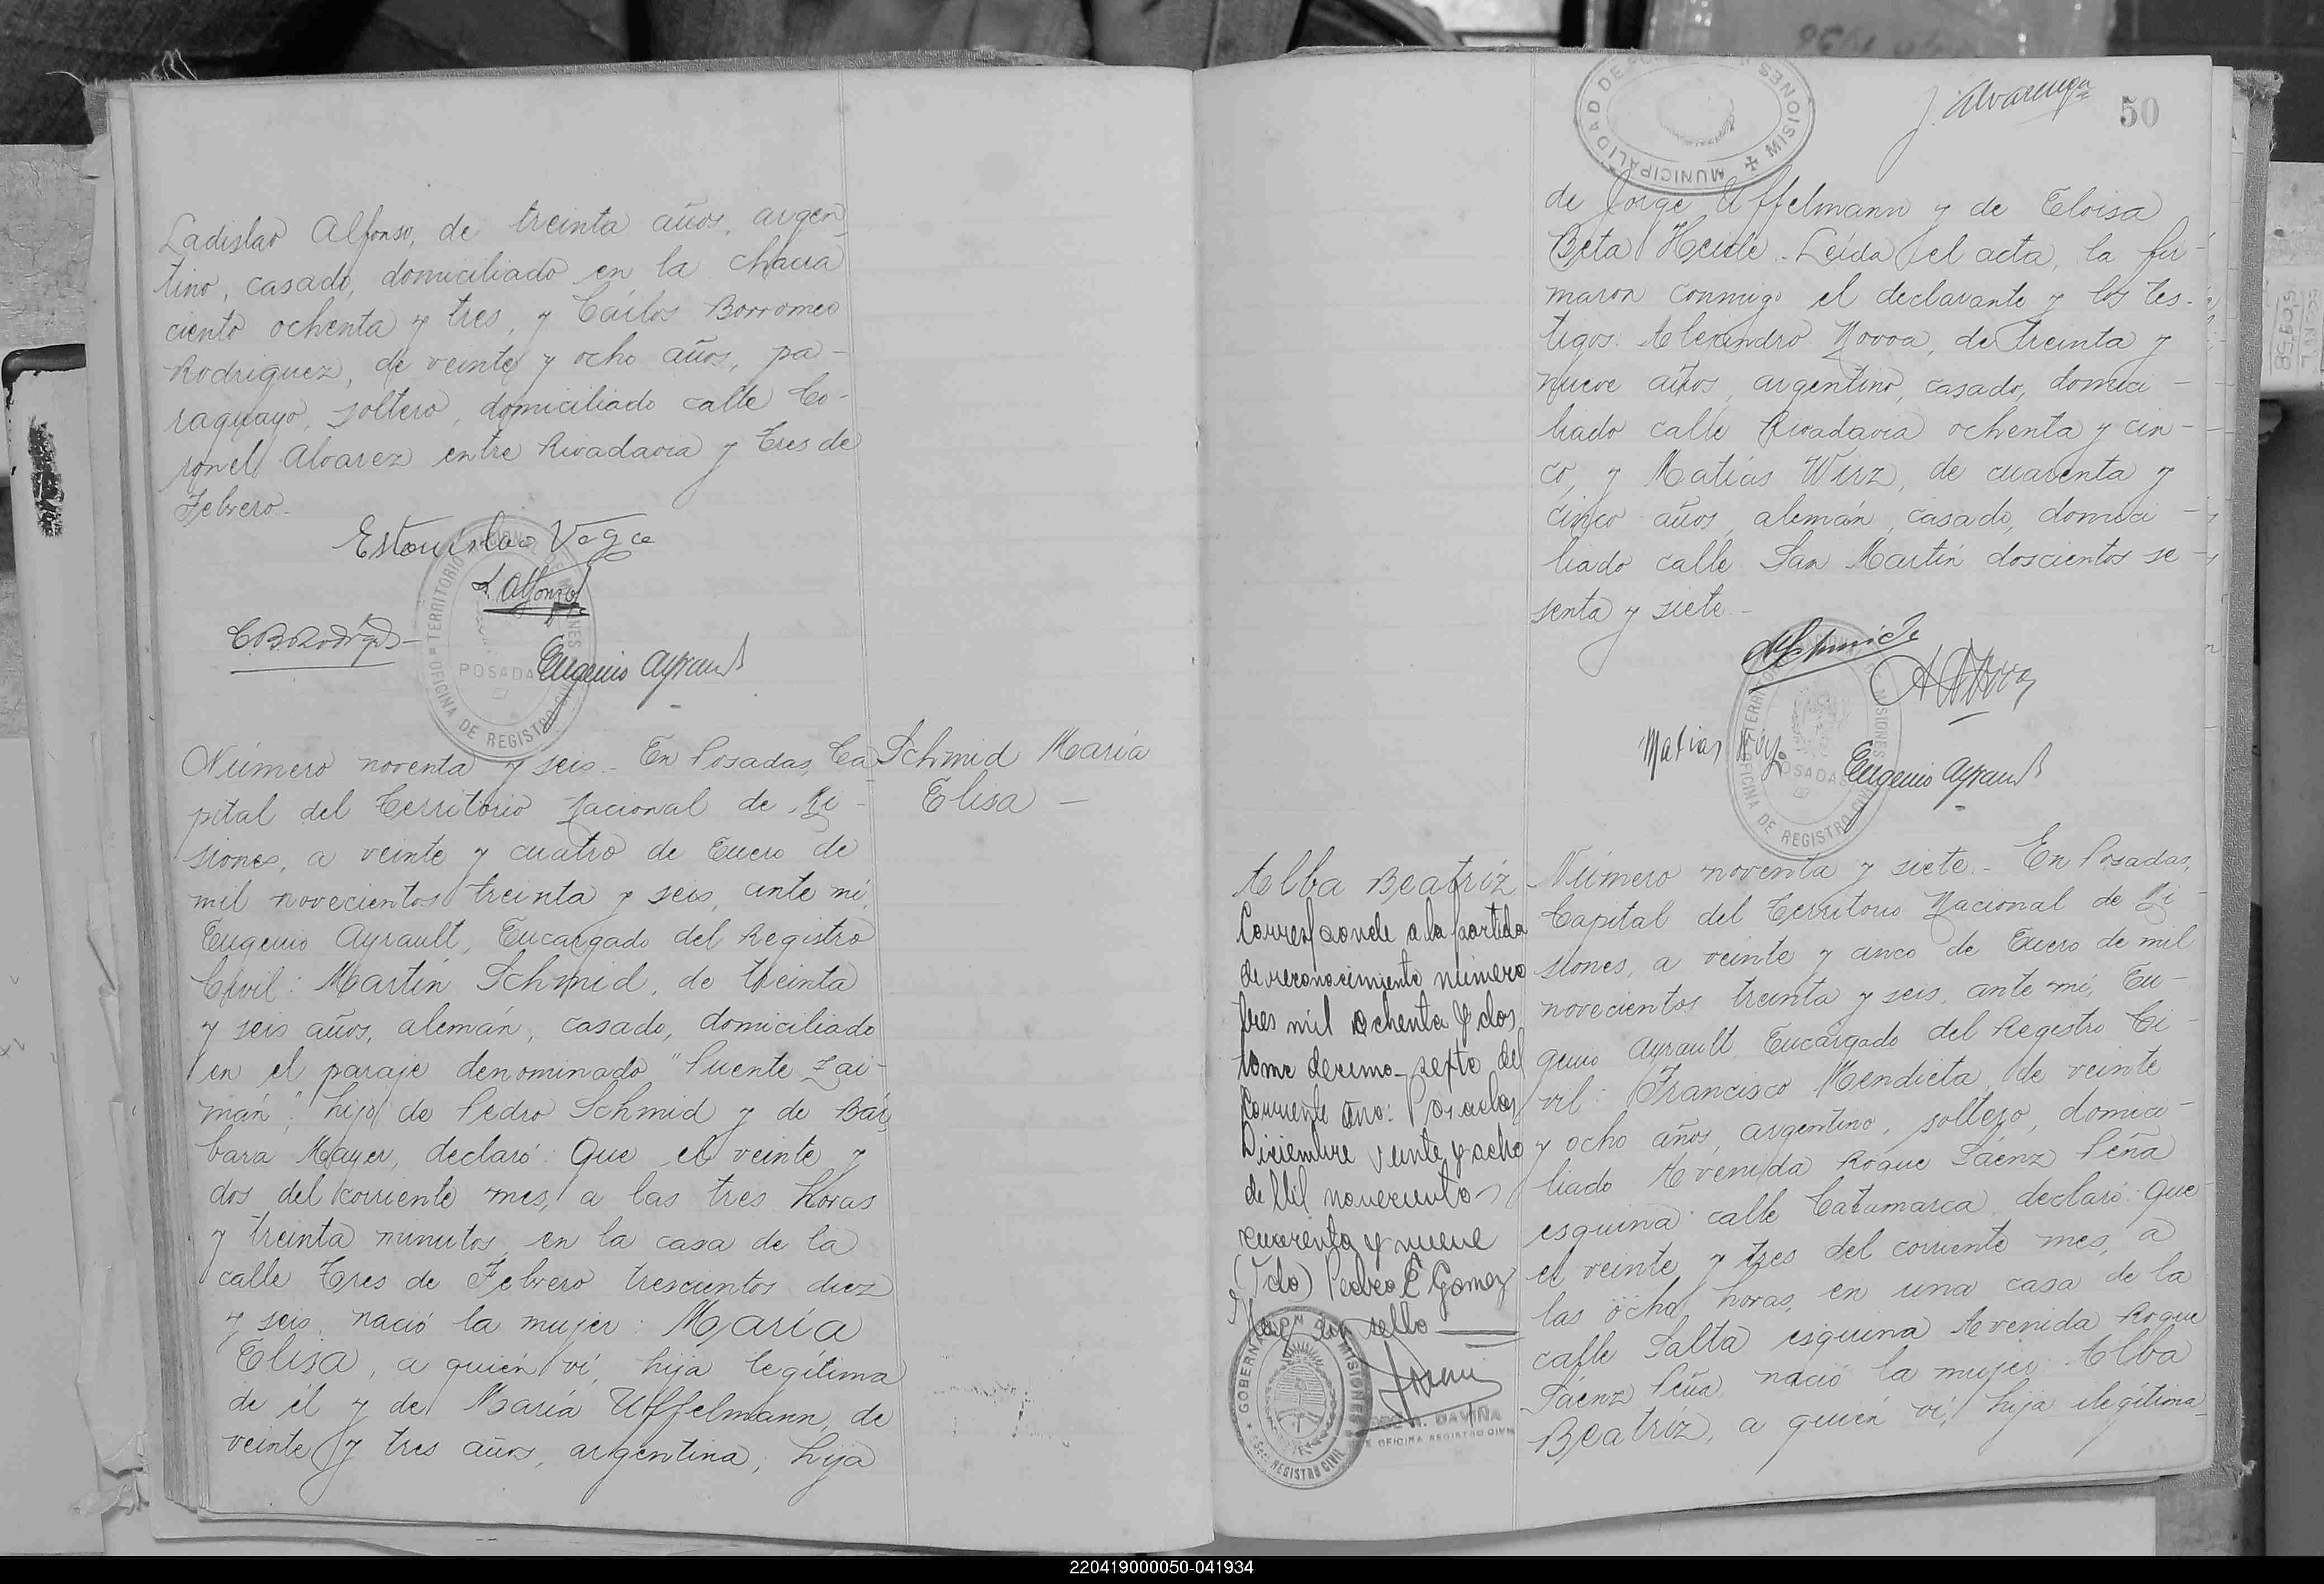 Ladislao Alfonso, de treinta años, argen-
tino, casado, domiciliado en la chacra
ciento ochenta y tres, y Cárlos Borromeo
Rodriguez, de veinte y ocho años, pa-
raguayo, soltero, domiciliado calle Co-
ronel Alvarez entre Rivadavia y Tres de
Febrero.-
Estanislao Vega
L Alfonso
C.B. Rodríguez
Eugenio Ayrault
TERRITORIO NACIONAL DE MISIONES
POSADAS
OFICINA DE REGISTRO CIVIL
Schmid María
Elisa -
Número noventa y seis.- En Posadas, Ca
pital del Territorio Nacional de Mi-
siones, a veinte y cuatro de Enero de
mil novecientos treinta y seis, ante mí,
Eugenio Ayrault, Encargado del Registro
Civil: Martín Schmid, de treinta
y seis años, alemán, casado, domiciliado
en el paraje denominado "Puente Zai-
mán", hijo de Pedro Schmid y de Bár
bara Mayer, declaró: Que el veinte y
dos del corriente mes, a las tres horas
y treinta minutos, en la casa de la
calle Tres de Febrero trescientos diez
y seis, nació la mujer: María
Elisa, a quién ví, hija legítima
de él y de María Uffelmann, de
veinte y tres años, argentina, hija
MUNICIPALIDAD DE MISIONES
J. Alvarenga
50
de Jorge Uffelmann y de Eloisa
Beta Heide.- Leída el acta, la fir-
maron conmigo el declarante y los tes-
tigos: Alejandro Novoa, de treinta y
nueve años, argentino, casado, domici-
liado calle Rivadavia ochenta y cin-
co, y Matías Wirz, de cuarenta y
cinco años, alemán, casado, domici-
liado calle San Martín doscientos se
senta y siete.-
MSchmid
Matias Wirz
Eugenio Ayrault
TERRITORIO NACIONAL DE MISIONES
POSADAS
OFICINA DE REGISTRO CIVIL
Alba Beatríz
Corresponde a la partida
de reconocimiento número
tres mil ochenta y dos
tomo decimo-sexto del
corriente año: Posadas
Diciembre veinte y ocho
de Mil novecientos
cuarenta y nueve
(Fdo) Pedro E Gomez
Hay un sello
GOBERNACION DE MISIONES
REGISTRO CIVIL
DAVIÑA
OFICINA REGISTRO CIVIL
Número noventa y siete.- En Posadas,
Capital del Territorio Nacional de Mi-
siones, a veinte y cinco de Enero de mil
novecientos treinta y seis, ante mí, Eu-
genio Ayrault, Encargado del Registro Ci-
vil: Francisco Mendieta, de veinte
y ocho años, argentino, soltero, domici-
liado Avenida Roque Sáenz Peña
esquina calle Catamarca, declaró: Que
el veinte y tres del corriente mes, a
las ocho horas, en una casa de la
calle Salta esquina Avenida Roque
Sáenz Peña, nació la mujer: Alba
Beatríz, a quién ví, hija ilegítima
220419000050-041934